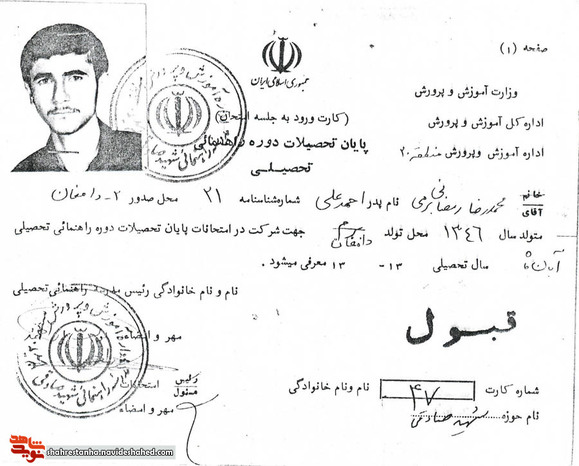 صفحه (۱)
جمهوری اسلامی ایران
وزارت آموزش و پرورش
(کارت ورود به جلسه امتحان)
اداره کل آموزش و پرورش
پایان تحصیلات دوره راهنمائی
تحصیلی
اداره آموزش و پرورش منطقه ۲۰
خانم
آقای محمدرضا نام پدر احمدعلی شماره شناسنامه ۲۱ محل صدور ۲- دامغان
متولد سال ۱۳۴۶ محل تولد دامغان جهت شرکت در امتحانات پایان تحصیلات دوره راهنمائی تحصیلی
سال تحصیلی ۱۳ - ۱۳ معرفی میشود.
نام و نام خانوادگی رئیس مدرسه راهنمائی تحصیلی
مهر و امضاء
قبول
رئیس
مسئول
امتحانات
مهر و امضاء
شماره کارت ۴۷ نام ونام خانوادگی
نام حوزه شهید صادقی
شاهد
نوید
shahrestanha.navideshahed.com